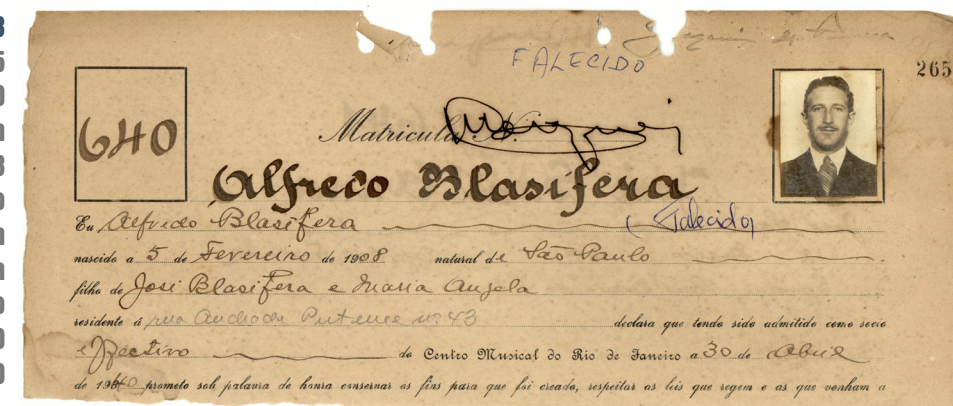 FALECIDO
265
640
Matricula N.
Alfredo Blasifera
Eu, Alfredo Blasifera (Falecido)
nascido a 5 de Fevereiro de 1908 natural de São Paulo
filho de José Blasifera e Maria Angela
residente á rua Andrade n.º 43 declara que tendo sido admitido como socio
efectivo do Centro Musical do Rio de Janeiro a 30 de Abril
de 1940 prometo sob palavra de honra conservar os fins para que foi creado, respeitar as leis que regem e as que venham a